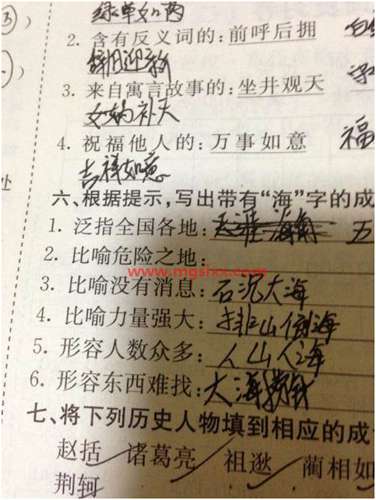 绿草如茵
2. 含有反义词的: 前呼后拥
辞旧迎新
3. 来自寓言故事的: 坐井观天
女娲补天
4. 祝福他人的: 万事如意 福
吉祥如意
六、根据提示,写出带有“海”字的成
1. 泛指全国各地: 天涯海角 五
2. 比喻危险之地:
www.mgshxx.com
3. 比喻没有消息: 石沉大海
4. 比喻力量强大: 排山倒海
5. 形容人数众多: 人山人海
6. 形容东西难找: 大海捞针
七、将下列历史人物填到相应的成
赵括 诸葛亮 祖逖 蔺相如
荆轲